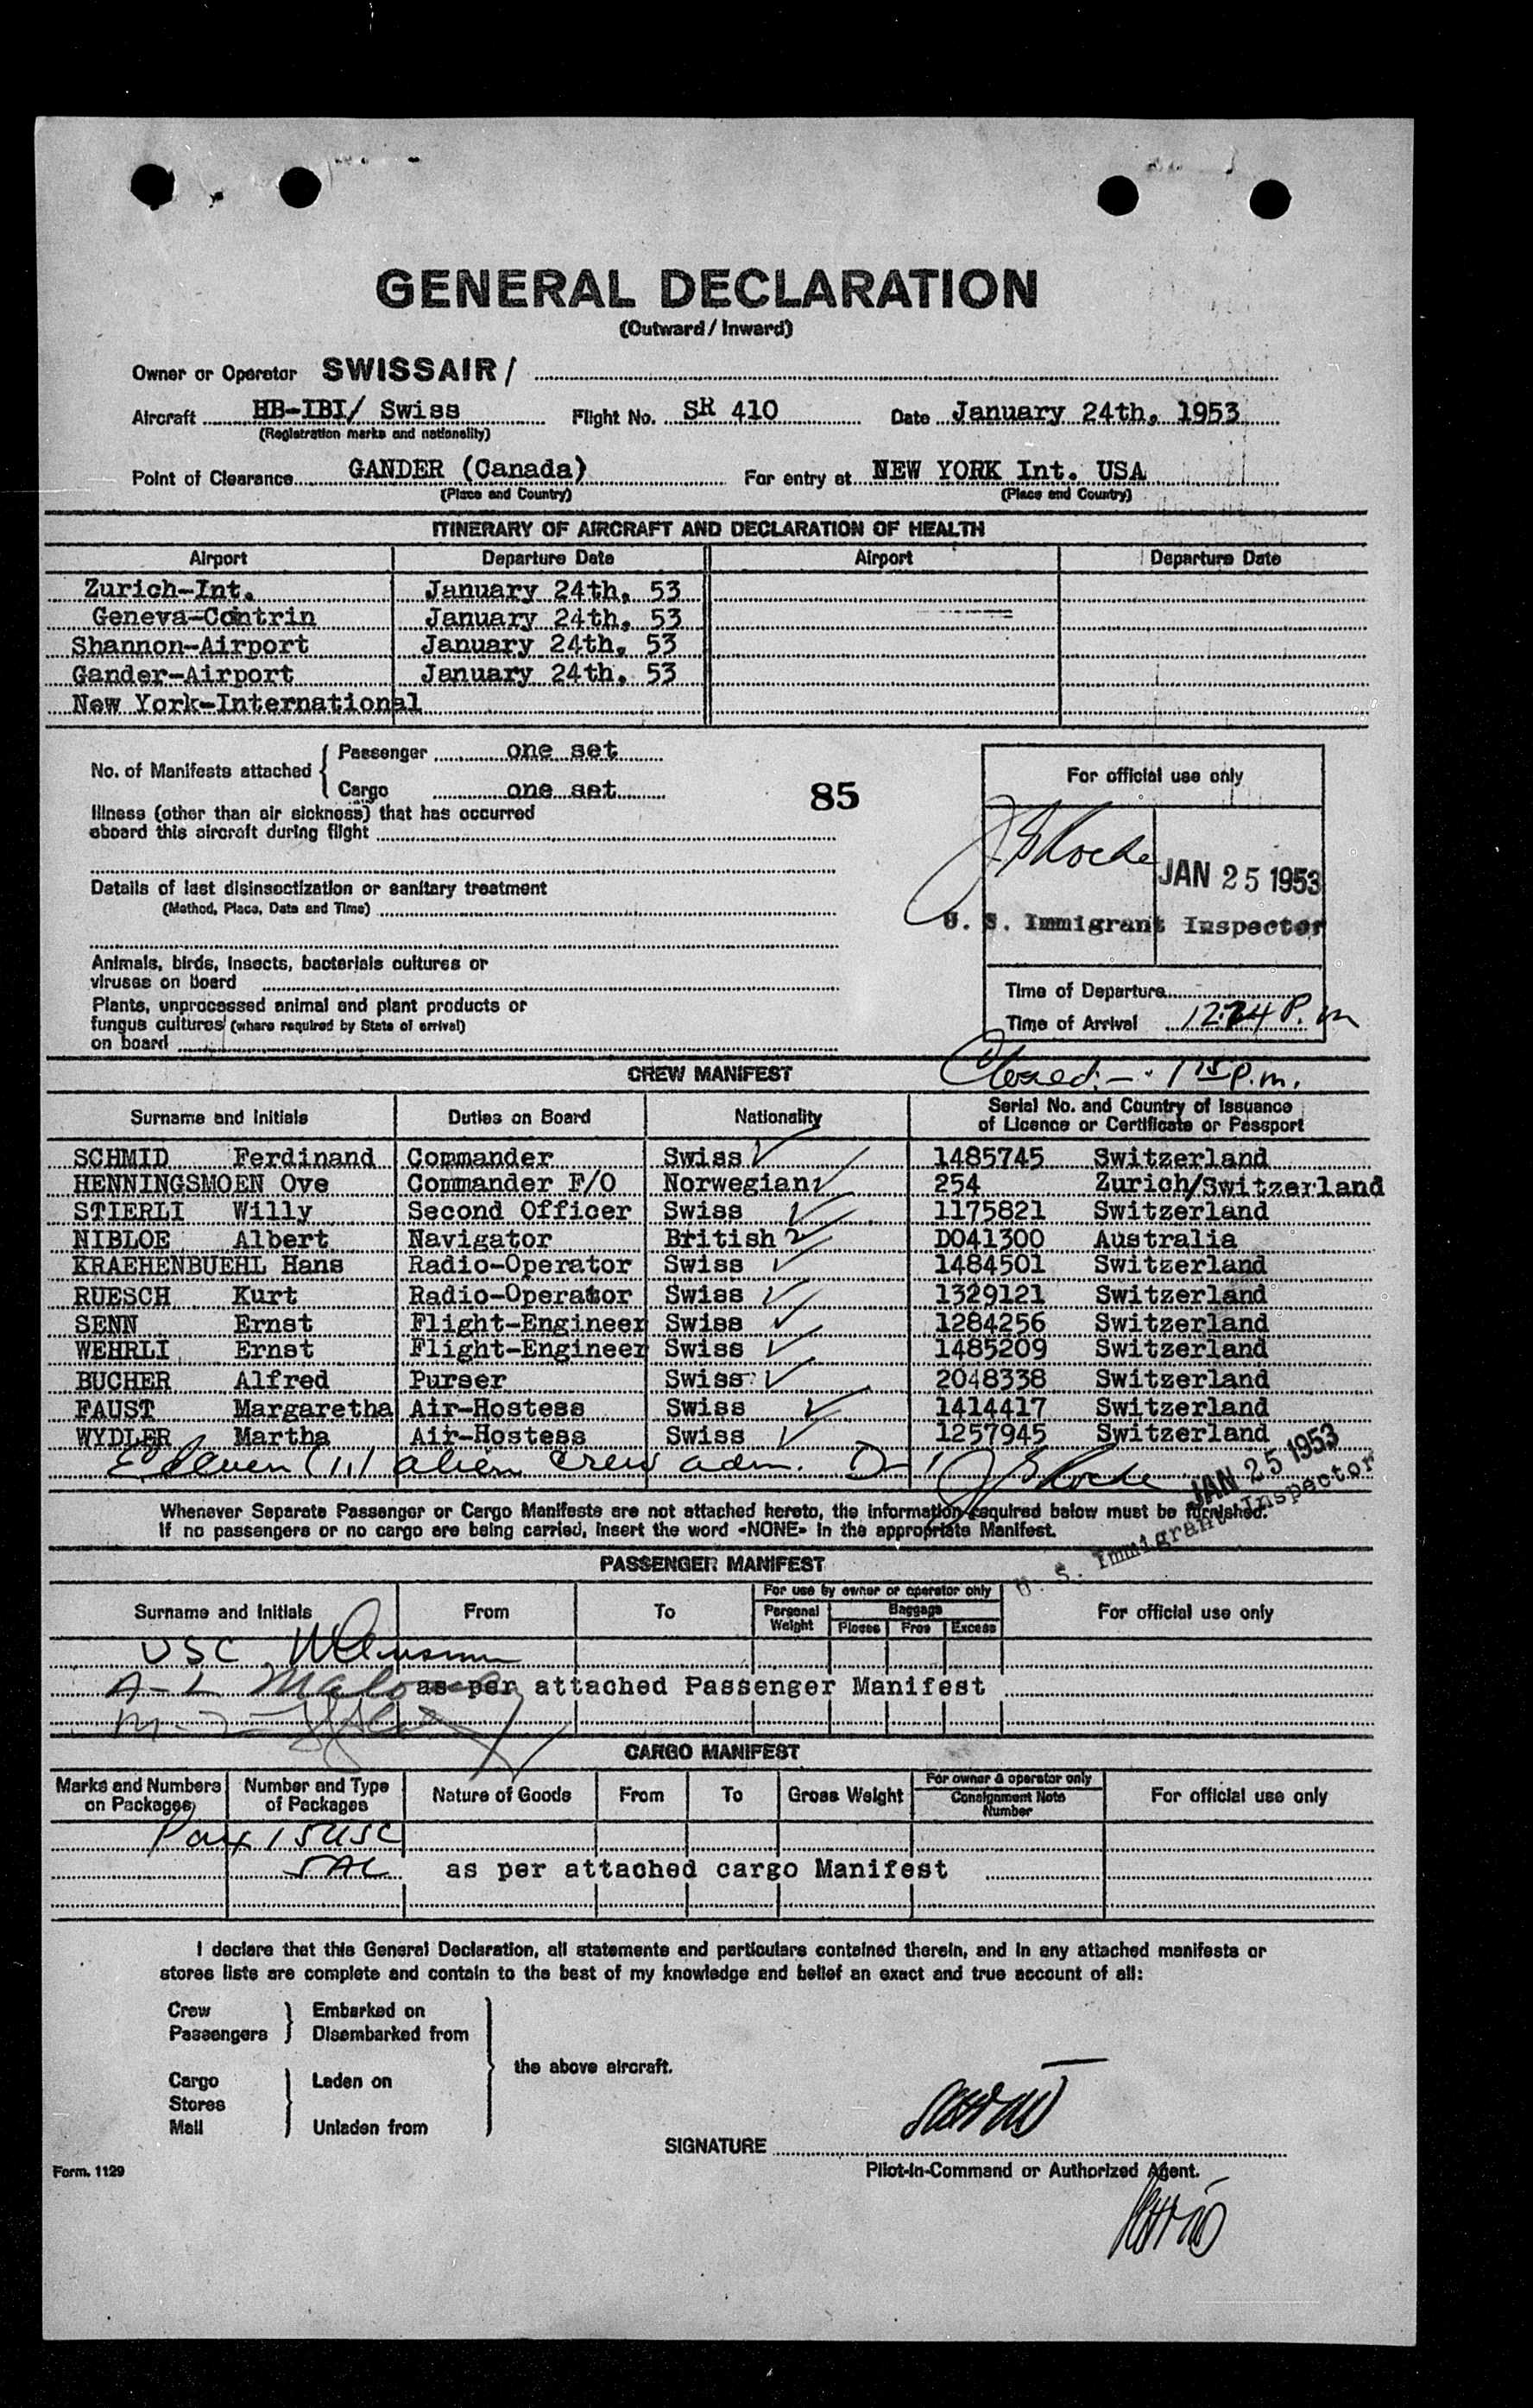 GENERAL DECLARATION
(Outward / Inward)
Owner or Operator SWISSAIR /
Aircraft HB-IBI/ Swiss Flight No. SR 410 Date January 24th, 1953
(Registration marks and nationality)
Point of Clearance GANDER (Canada) For entry at NEW YORK Int. USA
(Place and Country) (Place and Country)
ITINERARY OF AIRCRAFT AND DECLARATION OF HEALTH
Airport Departure Date Airport Departure Date
Zurich-Int. January 24th, 53
Geneva-Cointrin January 24th, 53
Shannon-Airport January 24th, 53
Gander-Airport January 24th, 53
New York-International
No. of Manifests attached { Passenger one set
Cargo one set
85
For official use only
Illness (other than air sickness) that has occurred
aboard this aircraft during flight
Details of last disinsectization or sanitary treatment
(Method, Place, Date and Time)
JAN 25 1953
U. S. Immigrant Inspector
Animals, birds, insects, bacterials cultures or
viruses on board
Plants, unprocessed animal and plant products or
fungus cultures (where required by State of arrival)
on board
Time of Departure
Time of Arrival P.m
Closed:- 1 15 P.m.
CREW MANIFEST
Surname and Initials Duties on Board Nationality Serial No. and Country of Issuance
of Licence or Certificate or Passport
SCHMID Ferdinand Commander Swiss 1485745 Switzerland
HENNINGSMOEN Ove Commander F/O Norwegian 254 Zurich/Switzerland
STIERLI Willy Second Officer Swiss 1175821 Switzerland
NIBLOE Albert Navigator British D041300 Australia
KRAEHENBUEHL Hans Radio-Operator Swiss 1484501 Switzerland
RUESCH Kurt Radio-Operator Swiss 1329121 Switzerland
SENN Ernst Flight-Engineer Swiss 1284256 Switzerland
WEHRLI Ernst Flight-Engineer Swiss 1485209 Switzerland
BUCHER Alfred Purser Swiss 2048338 Switzerland
FAUST Margaretha Air-Hostess Swiss 1414417 Switzerland
WYDLER Martha Air-Hostess Swiss 1257945 Switzerland
Eleven (11) alien crew adm. D-1
JAN 25 1953
U. S. Immigrant Inspector
Whenever Separate Passenger or Cargo Manifests are not attached hereto, the information required below must be furnished.
If no passengers or no cargo are being carried, insert the word «NONE» in the appropriate Manifest.
PASSENGER MANIFEST
Surname and Initials From To For use by owner or operator only For official use only
Personal Weight Baggage
Pieces Free Excess
USC
A-L as per attached Passenger Manifest
CARGO MANIFEST
Marks and Numbers on Packages Number and Type of Packages Nature of Goods From To Gross Weight For owner & operator only For official use only
Consignment Note Number
Pax 15 USC
5 AL as per attached cargo Manifest
I declare that this General Declaration, all statements and particulars contained therein, and in any attached manifests or
stores lists are complete and contain to the best of my knowledge and belief an exact and true account of all:
Crew } Embarked on
Passengers } Disembarked from
the above aircraft.
Cargo } Laden on
Stores
Mail } Unladen from
SIGNATURE
Form. 1129
Pilot-in-Command or Authorized Agent.